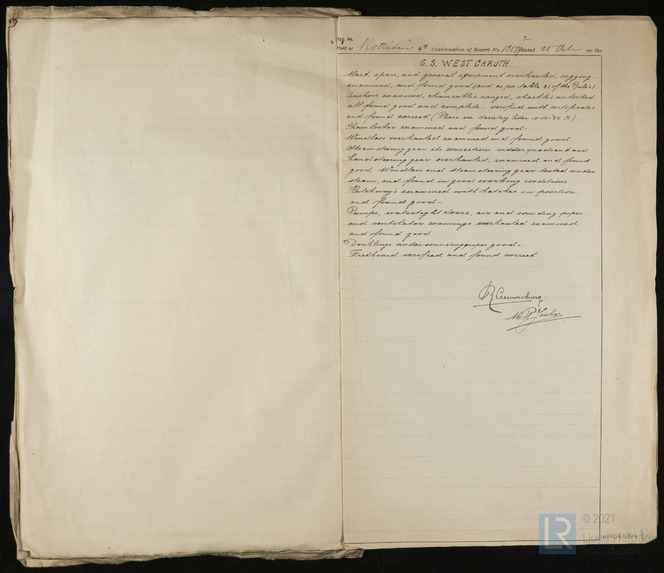 Port of Rotterdam 4th Continuation of Report No. dated 25 Octr on the
S.S. WEST CARUTH
Mast, spars, and general equipment overhauled, rigging
examined, and found good (and as per table 31 of the Rules)
Anchors examined, chaincables ranged, shackles unlocked
all found good and complete, verified with certificates
and found correct. (Please see Secretary letter 10-10-22 )
Chain locker examined and found good.
Windlass overhauled examined and found good
Steamsteering gear its connection rudderquadrant and
handsteering gear overhauled, examined and found
good, Windlass and steamsteering gear tested under
steam, and found in good working conditions
Hatchway's examined with hatches in position
and found good -
Pumps, watertight doors, air and sounding pipes
and ventilator coamings overhauled examined
and found good.
Doublings under soundingpipes good -
Freeboard verified and found correct
© 2021
LR
Lloyd's Register
Foundation